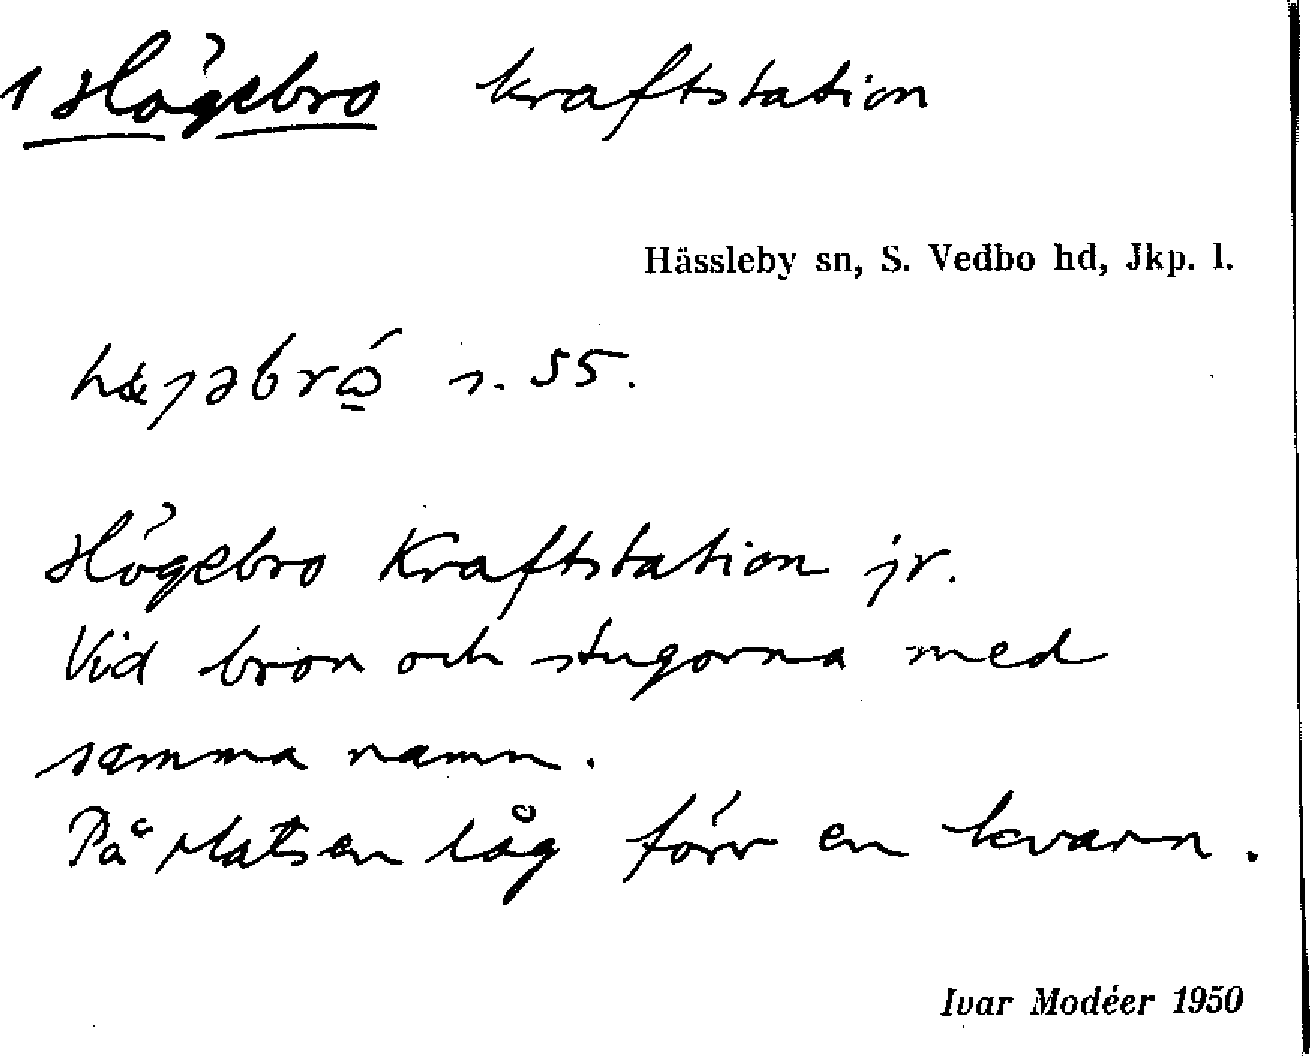 1 Högebro kraftstation
Hässleby sn, S. Vedbo hd, Jkp. l.
s. 55.
Högebro Kraftstation jr.
Vid bron och stugorna med
samma namn.
På platsen låg förr en kvarn.
Ivar Modéer 1950